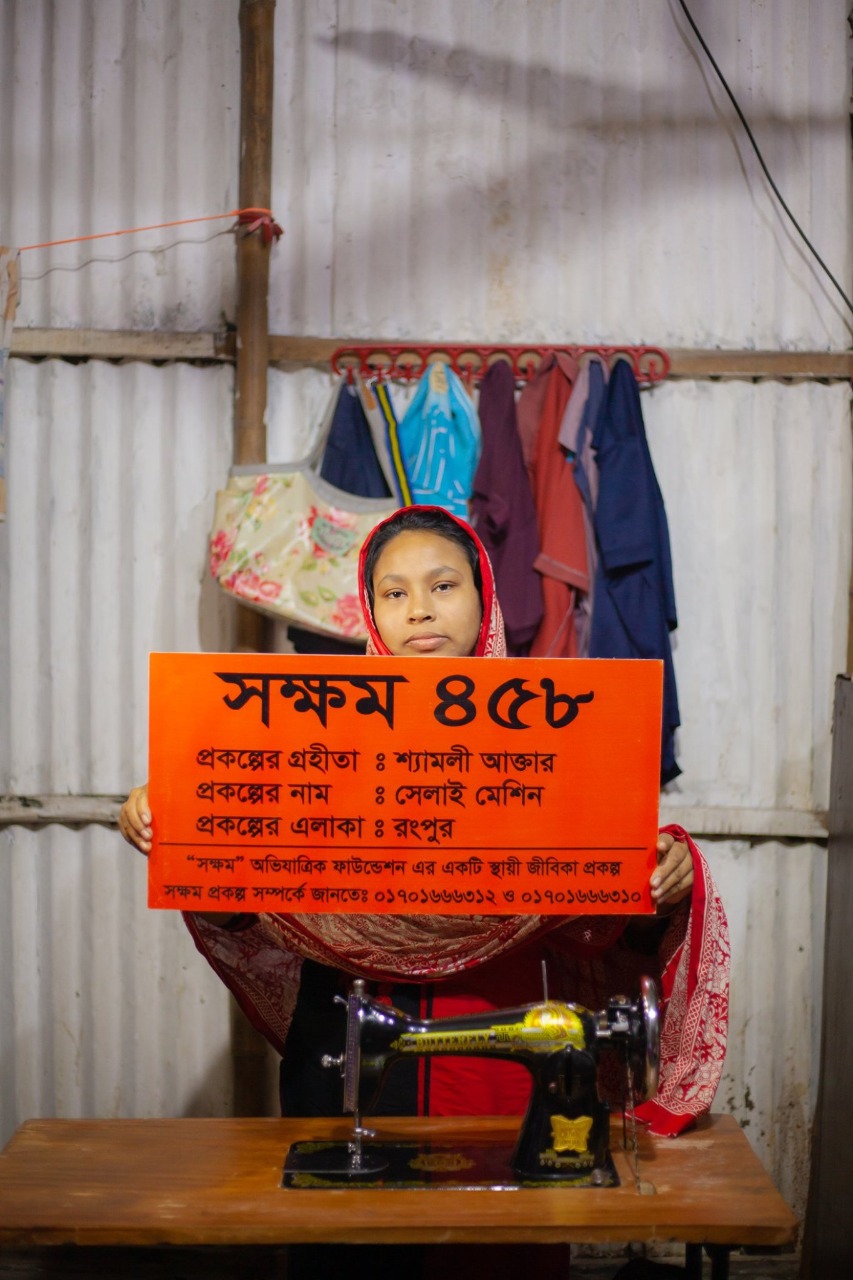 সক্ষম ৪৫৮
প্রকল্পের গ্রহীতা : শ্যামলী আক্তার
প্রকল্পের নাম : সেলাই মেশিন
প্রকল্পের এলাকা : রংপুর
“সক্ষম” অভিযাত্রিক ফাউন্ডেশন এর একটি স্থায়ী জীবিকা প্রকল্প
সক্ষম প্রকল্প সম্পর্কে জানতেঃ ০১৭০১৬৬৬৩১২ ও ০১৭০১৬৬৬৩১০
BUTTERFLY